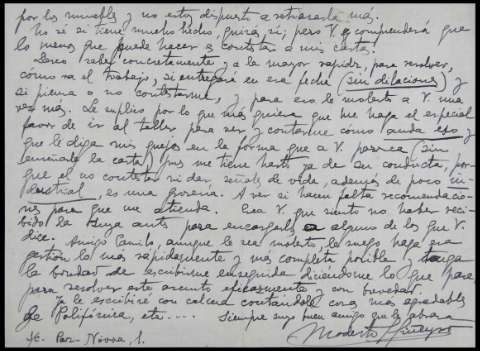 por los muebles y no estoy dispuesto a retrasarla más.
No sé si tiene mucho hecho, quizá sí; pero V. comprenderá que
lo menos que puede hacer es contestar a mis cartas.
Deseo saber concretamente y a la mayor rapidez, para resolver,
cómo va el trabajo, si entregará en esa fecha (sin dilaciones) y
si piensa o no contestarme, y para eso le molesto a V. una
vez más. Le suplico por lo que más quiera que me haga el especial
favor de ir al taller, para ver y contarme cómo anda eso y
que le diga mis quejas en la forma que a V. parezca (sin
enseñarle la carta) pues me tiene harto ya de su conducta, por
que el no contestar ni dar señales de vida, además de poco in-
dustrial, es una grosería. A ver si hacen falta recomendacio-
nes para que me atienda. Crea V. que siento no haber reci-
bido la suya antes para encargarle a alguno de los que V.
dice.
Amigo Camilo, aunque le sea molesto, le ruego haga esa
gestión lo más rápidamente y más completa posible y tenga
la bondad de escribirme enseguida diciéndome lo que pase
para resolver este asunto eficazmente y con brevedad.
Ya le escribiré con calma contándole cosas más agradables
de Polifónica, etc....
Siempre suyo buen amigo que le abraza
Modesto
s/c. Paz-Novoa, 1.